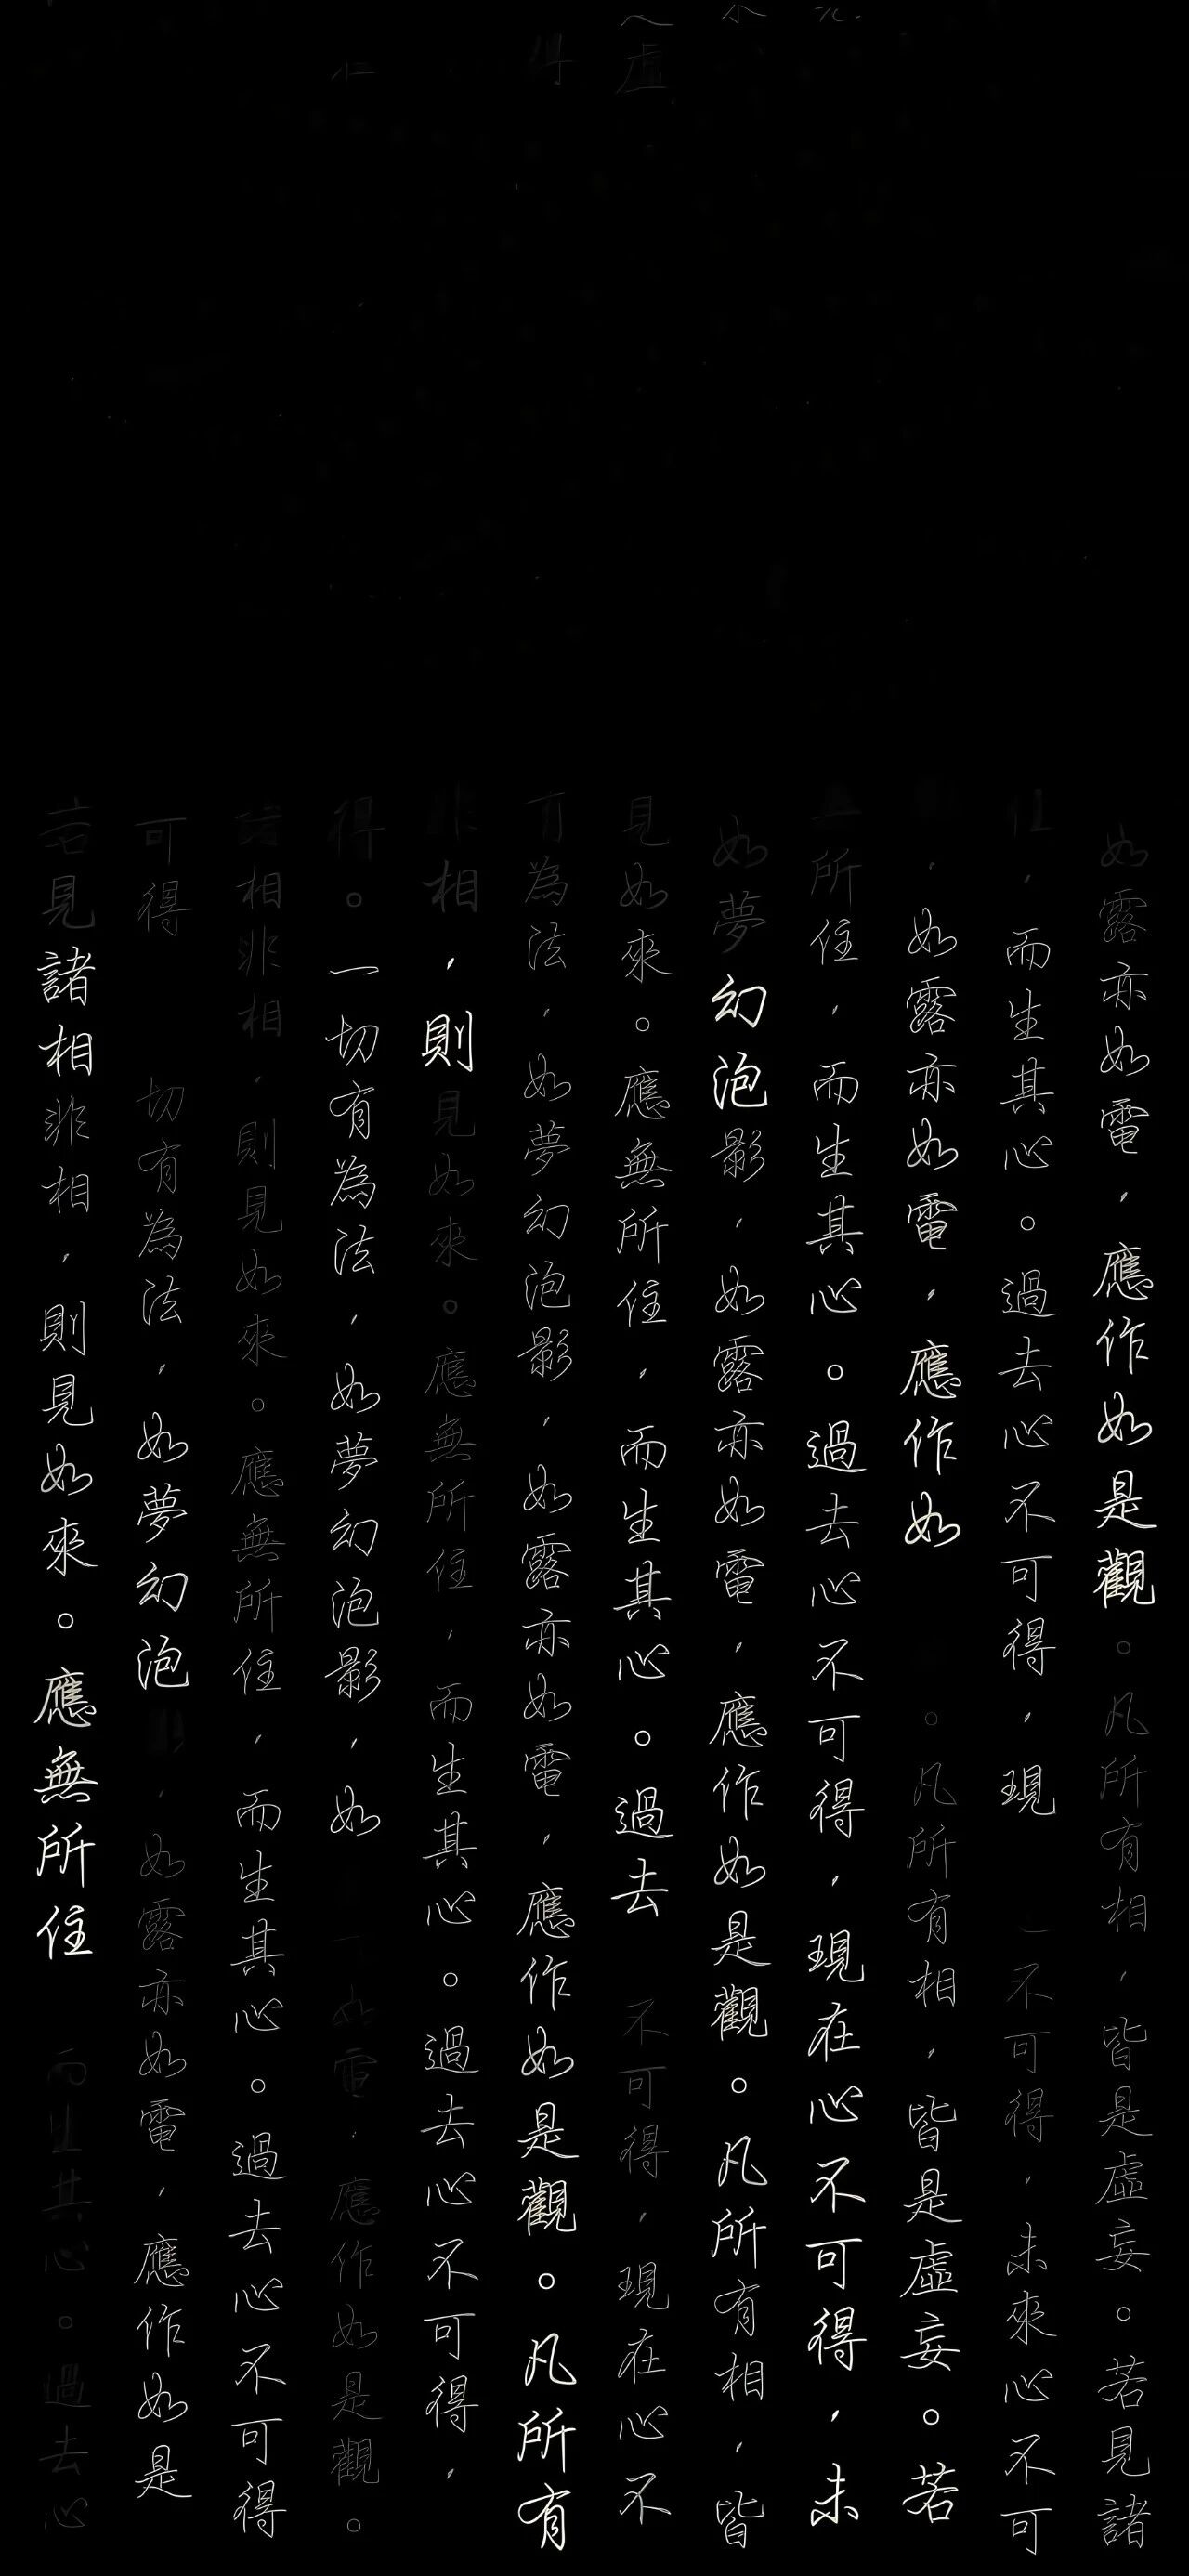 如露亦如電，應作如是觀。凡所有相，皆是虛妄。若見諸
住，而生其心。過去心不可得，現 不可得，未來心不可
，如露亦如電，應作如 。凡所有相，皆是虛妄。若
所住，而生其心。過去心不可得，現在心不可得，未
如夢幻泡影，如露亦如電，應作如是觀。凡所有相，皆
虛 見如來。應無所住，而生其心。過去 不可得，現在心不
有為法，如夢幻泡影，如露亦如電，應作如是觀。凡所有
非相，則見如來。應無所住，而生其心。過去心不可得，
得。一切有為法，如夢幻泡影，如 如電，應作如是觀。
諸相非相，則見如來。應無所住，而生其心。過去心不可得
可得 切有為法，如夢幻泡 ，如露亦如電，應作如是
若見諸相非相，則見如來。應無所住 而生其心。過去心